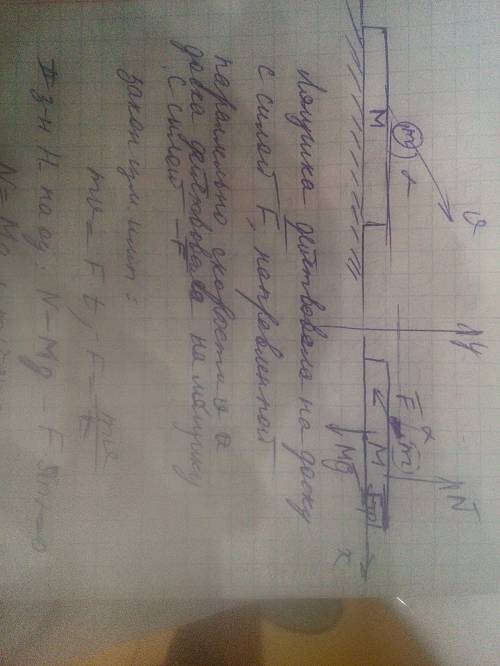 M
m
α
υ
y
N
F
α
m
M
Fтр
Mg
x
Лягушка действовала на доску
с силой F, направленной
параллельно скорости υ а
доска действовала на лягушку
с силой -F
закон изм. имп:
mυ = Ft, F = mυ/t
II з-н Н на оу: N-Mg - F sinα=0
N=Mg